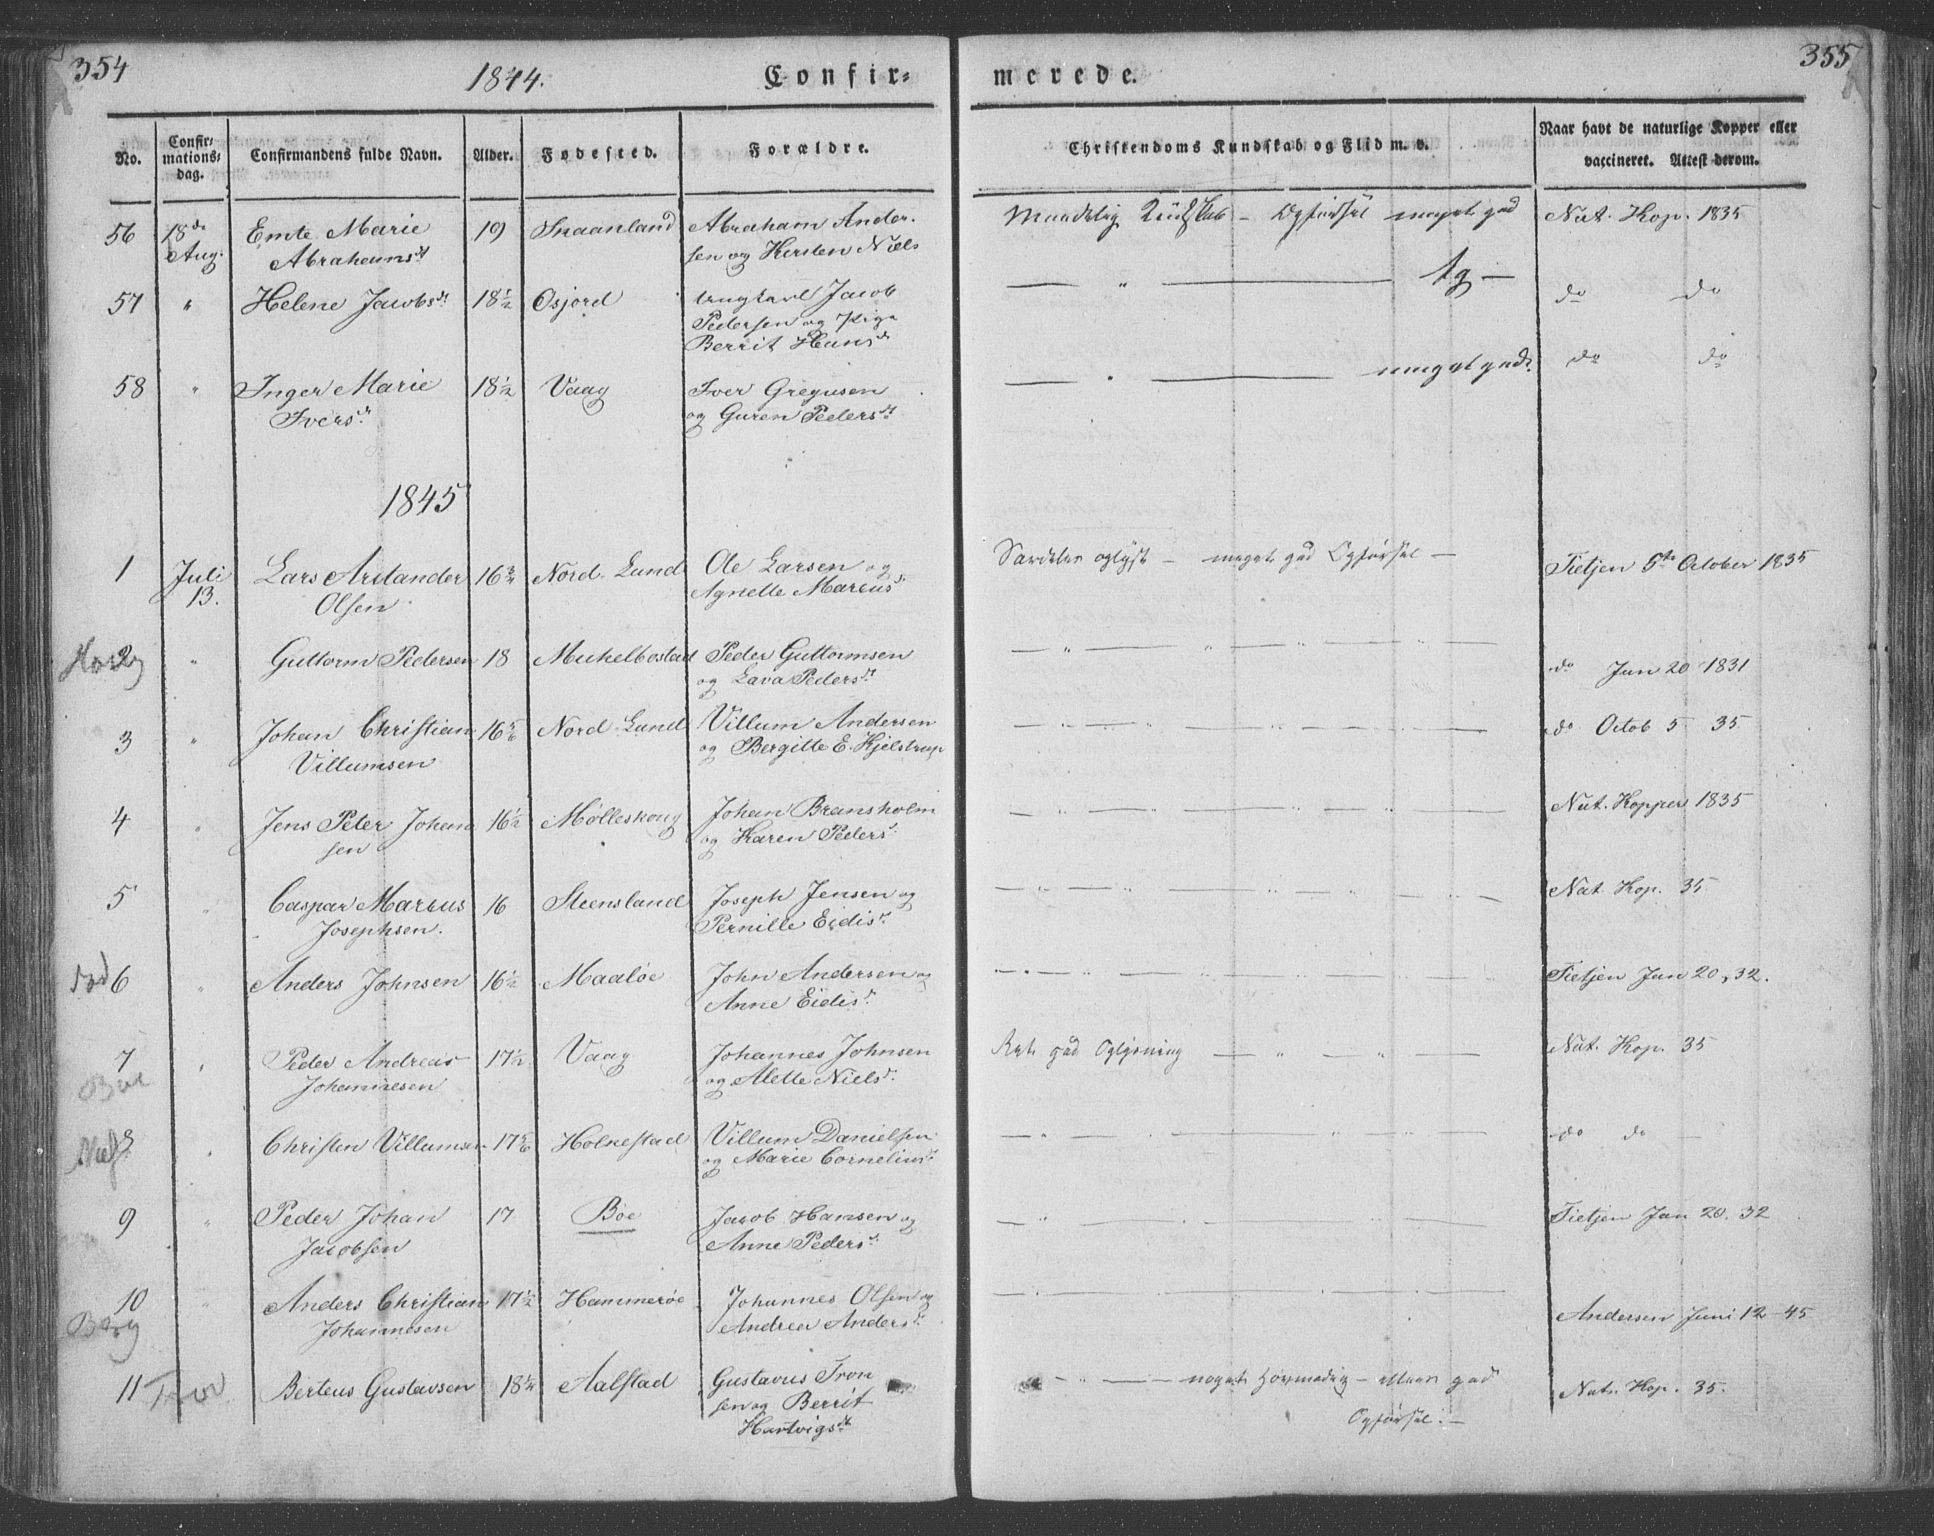 354
1844.
Confir-
merede.
355
No.
Confir-
mations-
dag.
Confirmandens fulde Navn.
Alder.
Fødested.
Forældre.
Christendoms Kundskab og Flid m. v.
Naar havt de naturlige Kopper eller
vaccineret. Attest derom.
56 18de Emte Marie 19 Snaanland Abraham Ander-
Aug. Abrahamsdt sen og Kirsten Niels
Maadelig Kundskab - Opførsel meget god Nat. Kop. 1835
57 " Helene Jacobsdt 18 1/2 Osjord ungkarl Jacob
Pedersen og Pige
Berrit Hansdt
— " — Tg — do do
58 " Inger Marie 18 1/2 Vaag Iver Gregusen
Iversdt og Guren Pedersdt
— " — meget god. do do
1845
1 Juli Lars Aristander 16 3/4 Nord. Lund Ole Larsen og
13. Olsen Agnette Marcusdt
Særdeles oplyst — meget god Opførsel — Tietjen 5te October 1835
2 " Guttorm Pedersen 18 Mickelbostad Peder Guttormsen
og Lava Pedersdt
— " — " — " — do Jan 20 1831
3 " Johan Christian 16 5/6 Nord Lund Villum Andersen
Villumsen og Bergitte E. Hjelstrup
— " — " — do Octob 5 35
4 " Jens Peter Johan 16 1/2 Mølleskoug Johan Bransholm
sen og Karen Pedersdt
— " — " — " — Nat. Kopper 1835
5 " Caspar Marcus 16 Steensland Joseph Jensen og
Josephsen. Pernille Eidisdt
— " — " — " — Nat. Kop. 35
6 " Anders Johnsen 16 1/2 Maaløe John Andersen og
Anne Eidisdt
— " — " — " — Tietjen Jan 20, 32.
7 " Peder Andreas 17 1/2 Vaag Johannes Johnsen
Boe Johannesen og Alette Nielsdt.
Ret god Oplysning — " — " — Nat. Kop. 35
8 " Christen Villumsen 17 5/6 Holkestad Villum Danielsen
og Marie Corneliusdt
— " — " — do do —
9 " Peder Johan 17 Bøe Jacob Hansen og
Jacobsen Anne Pedersdt
— " — " — Tietjen Jan 20. 32
10 " Anders Christian 17 1/2 Hammerøe Johannes Olsen og
Berg Johannesen Andrea Andersdt
— " — " — Andersen Juni 12 - 45
11 Berteus Gustavsen 18 1/4 Aalstad Gustavus Tron
sen og Berrit
Hartvigsdt
— " — — noget Hovmodig — ellers god Nat. Kop. 35.
Opførsel. —